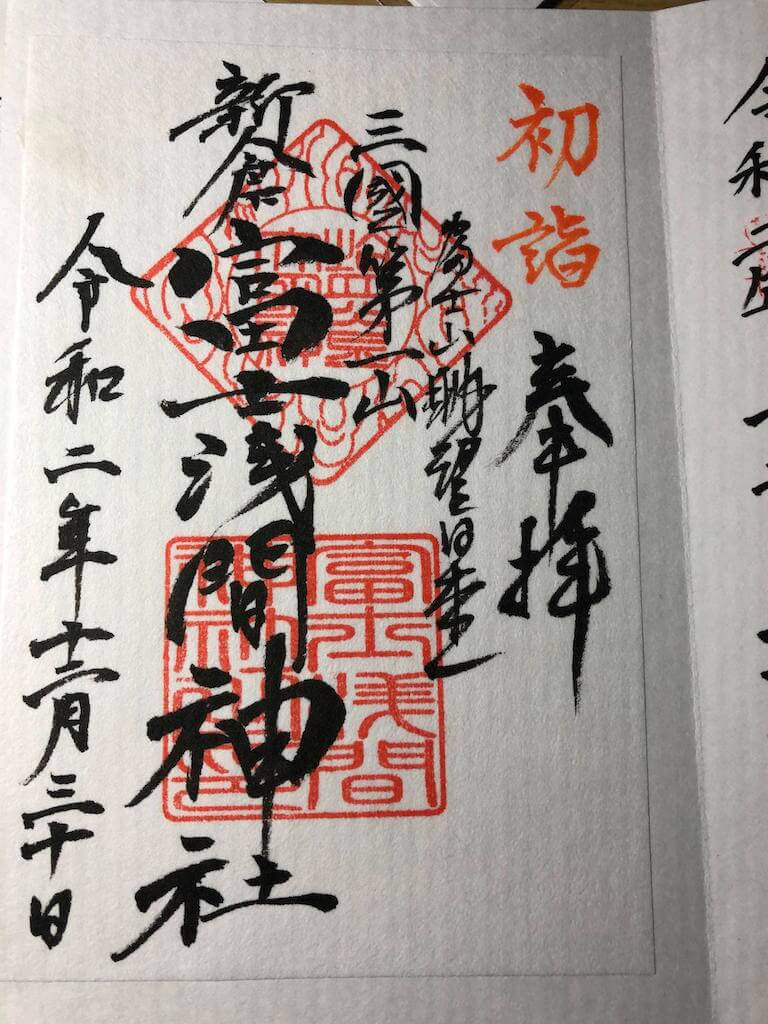 初詣
奉拝
富士山眺望日本一
三國第一山
新倉富士浅間神社
令和二年十二月三十日
富士浅間
令和二